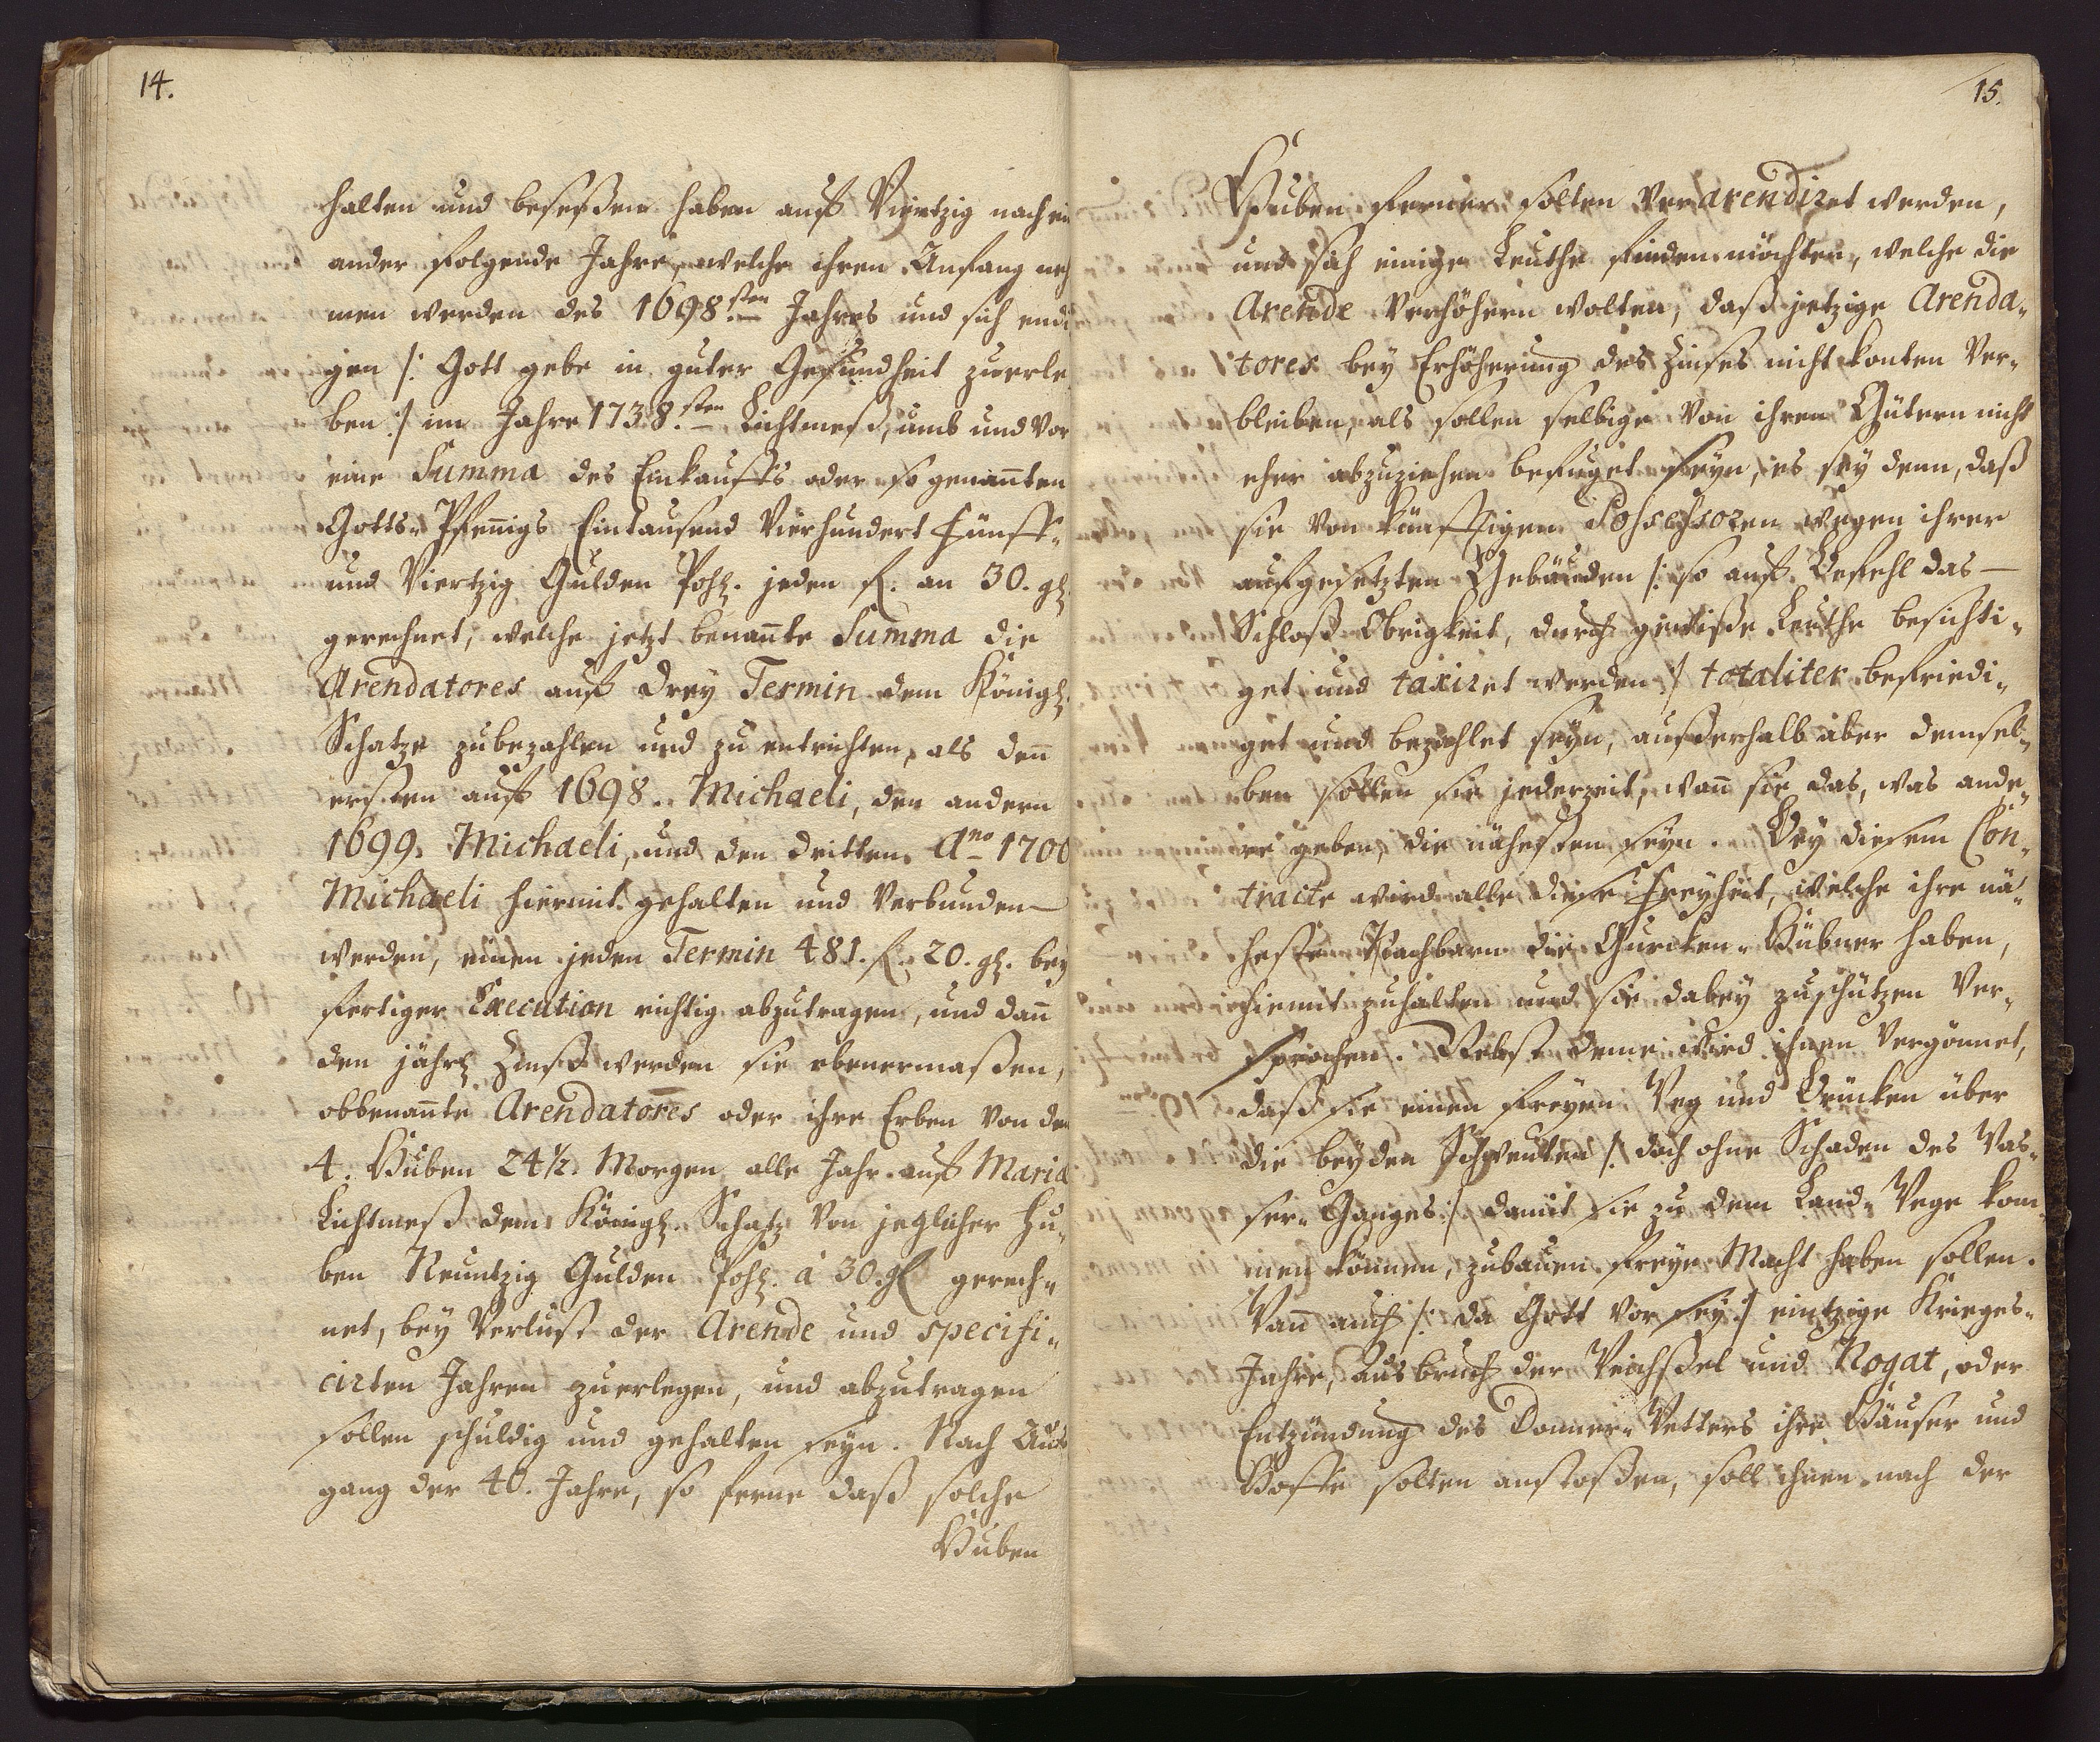 14.
halten und beseßen haben auff Viertzig nach ein
ander folgende Jahre, welche ihren Anfang neh
men werden des 1698.sten Jahres und sich endi
gen /: Gott gebe in guter Gesundheit zuerle
ben :/ im Jahre 1738.sten Lichtmeß, umb und vor
eine Summa des Einkauffs oder so genañten
Gotts-Pfeñigs Eintausend Vierhundert Fünff-
und Viertzig Gulden Pohl. jeden fl. an 30. gl.
gerechnet, welche jetzt benañte Summa die
Arendatores auff drey Termin dem Königl.
Schatze zubezahlen und zu entrichten, als deñ
ersten auff 1698. Michaeli, den andern
1699. Michaeli, und den dritten Ano 1700
Michaeli hiermit gehalten und verbunden
werden, einen jeden Termin 481. fl. 20. gl. bey
fertiger Execution richtig abzutragen, und dañ
den jährl Zinß werden sie ebenermaßen,
obbenañte Arendatores oder ihre Erben von den
4. Huben 24½ Morgen alle Jahr auff Maria
Lichtmeß dem Königl. Schatz von jeglicher Hu-
ben Neuntzig Gulden Pohl. à 30. gl gerech-
net, bey Verlust der Arende und specifi-
cirten Jahren zuerlegen, und abzutragen
sollen schuldig und gehalten seyn. Nach Auß
gang der 40. Jahre, so ferne daß solche
Huben
15.
Huben ferner solten verarendiret werden,
und sich einige Leuthe finden möchten, welche die
Arende verhöhern wolten, daß jetzige Arenda-
tores bey Erhöherung des Zinses nicht konten ver-
bleiben, als sollen selbige von ihren Gütern nicht
eher abzuziehen befuget seyn, es sey denn, daß
sie von künfftigen Possessoren wegen ihrer
auffgesetzten Gebäuden /: so auff Befehl das
Schloß Obrigkeit, durch gewiße Leuthe besichti-
get und taxiret werden :/ totaliter befriedi-
get und bezahlet seyn, außerhalb aber demsel-
ben sollen sie jederzeit, wañ sie das, was ande-
re geben, die nähesten seyn. Bey diesem Con-
tracte wird alle diese Freyheit, welche ihre nä-
heste Nachbarn die Gurcken-Hübner haben,
hiemit zuhalten und sie dabey zuschützen ver-
sprochen. Nebst deme wird ihnen vergönnet,
daß sie einen freyen Weg und Brücken über
die beyden Schwenten /: doch ohne Schaden des Was-
ser-Ganges :/ damit sie zu dem Land-Wege kom-
men können, zubauen freye Macht haben sollen.
Wañ auch /: da Gott vor sey :/ eintzige Krieges-
Jahre, Ausbruch der Weichßel und Nogat, oder
Entzündung des Donner-Wetters ihre Häuser und
Hoffe solten anstoßen, soll ihnen nach der